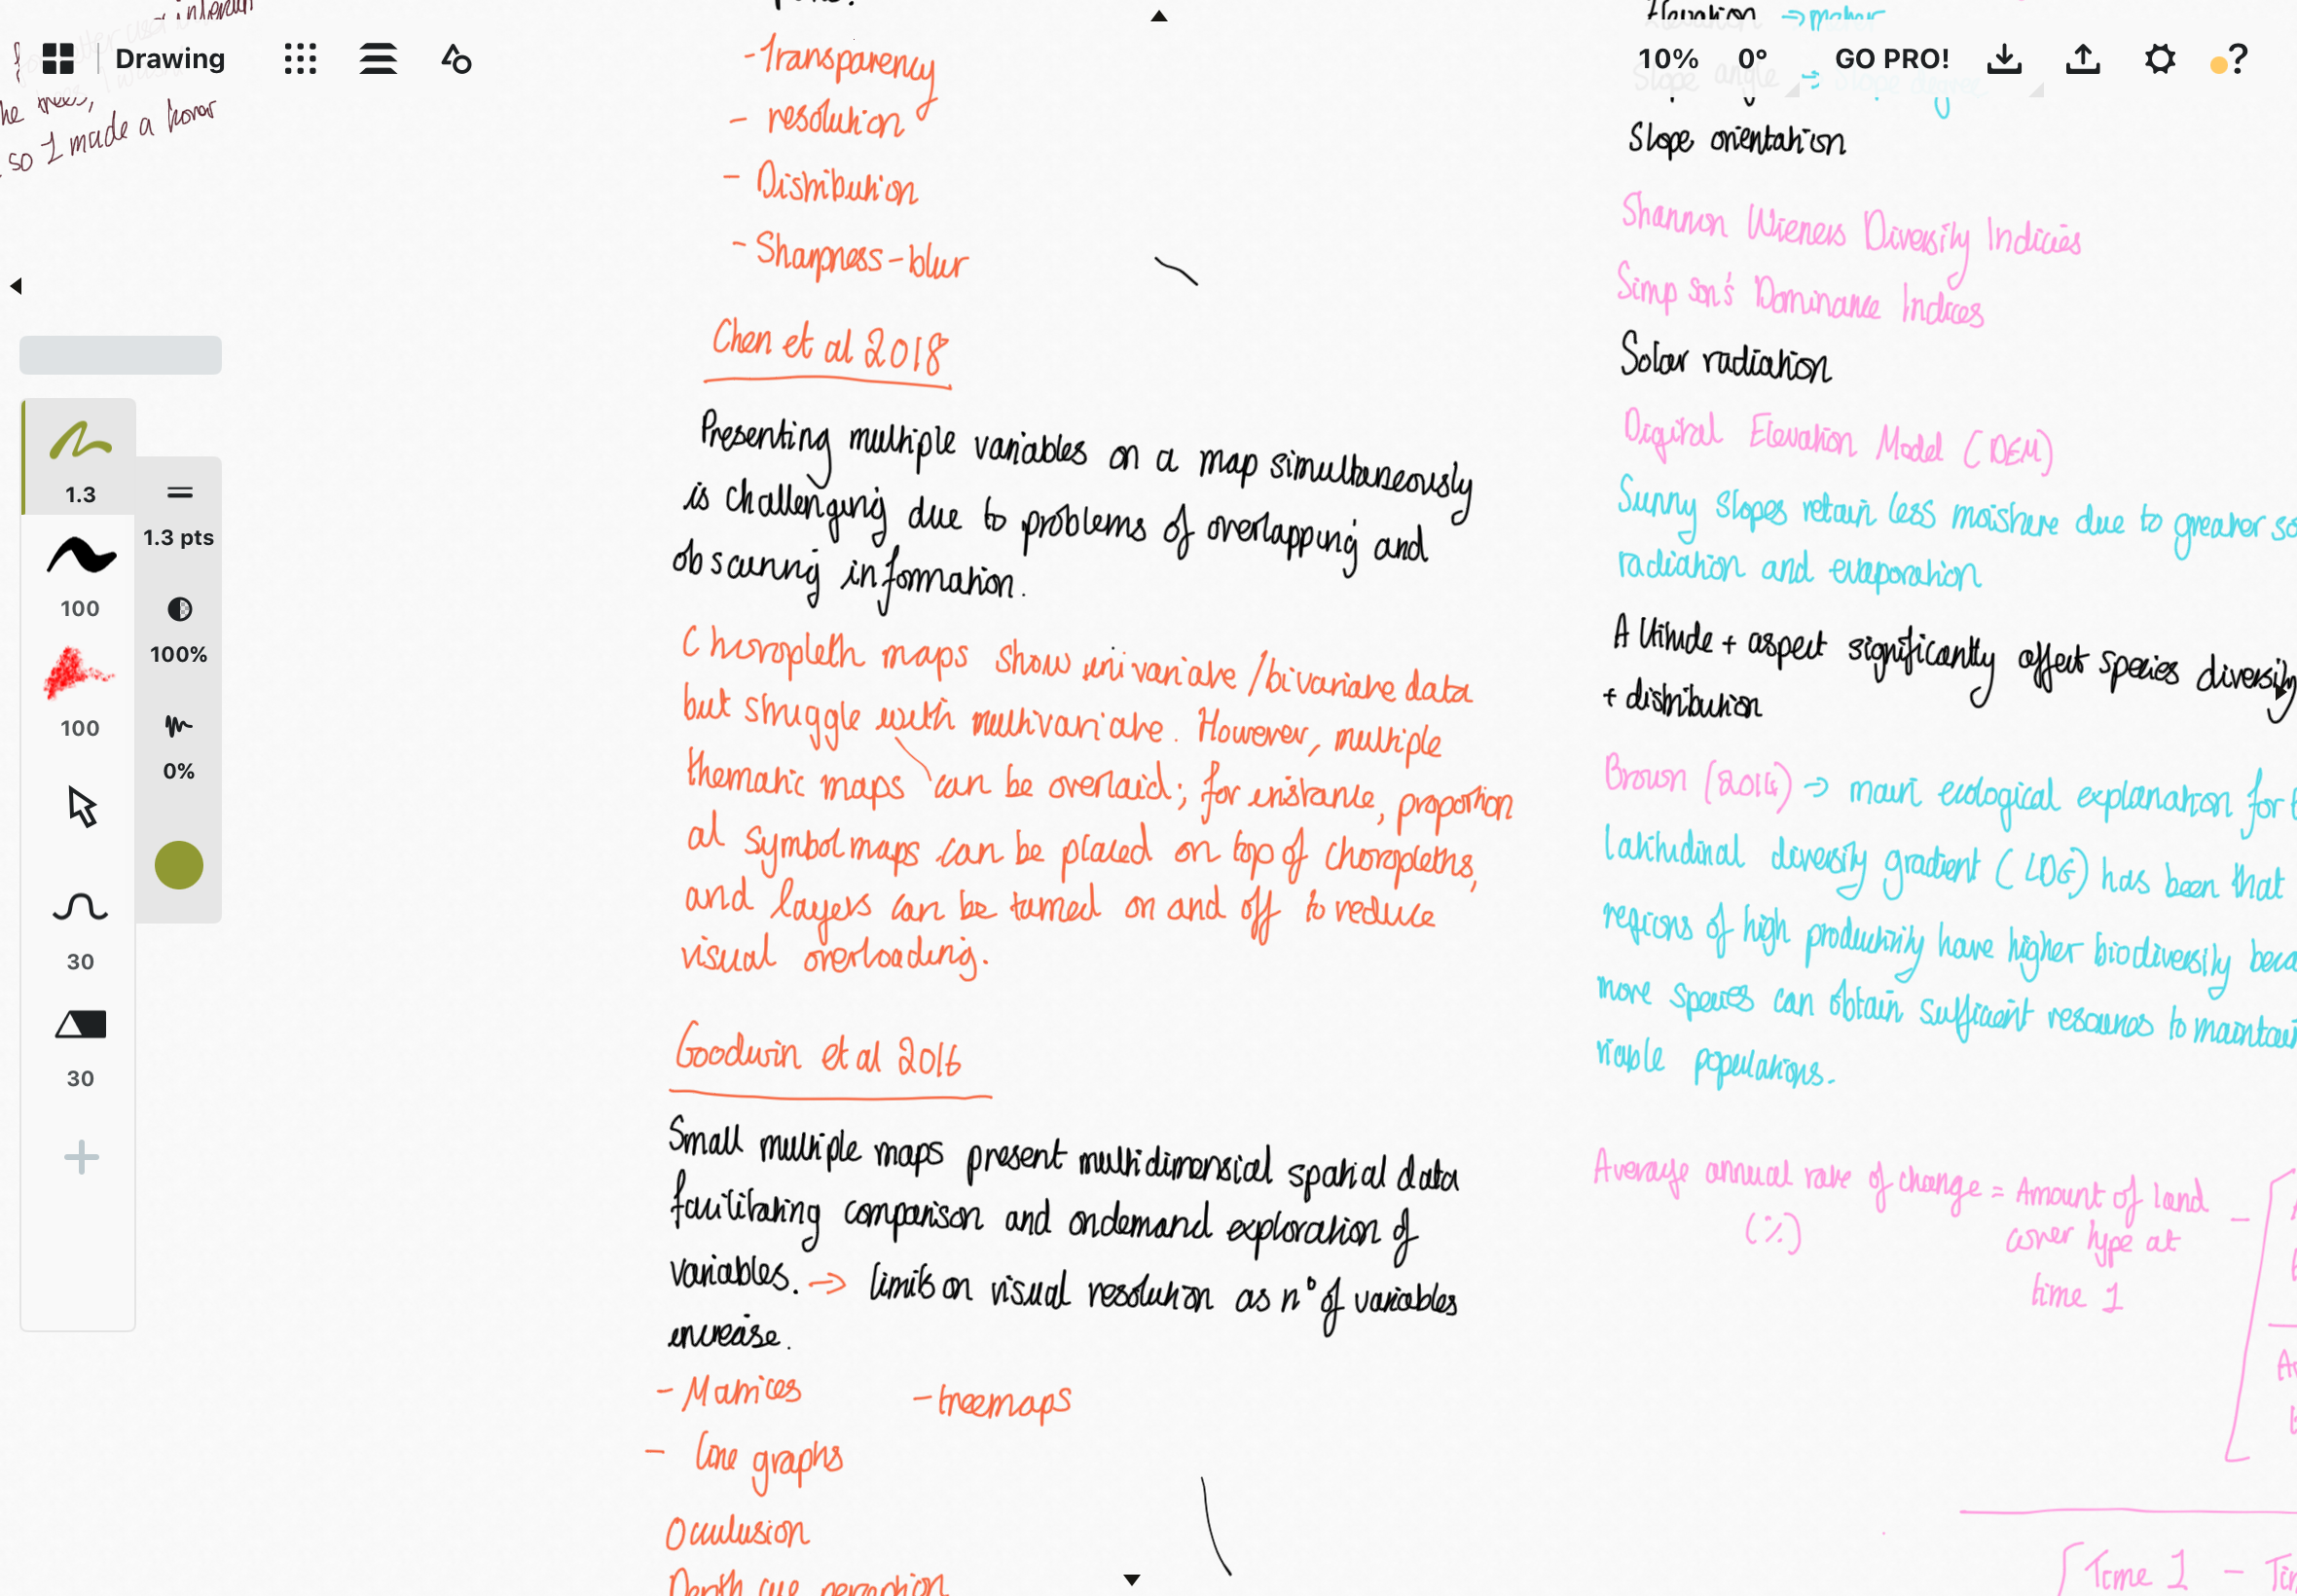 Drawing
10% 0° GO PRO! ?
he trees,
so I made a horror
- Transparency
- resolution
- Distribution
- Sharpness - blur
Chen et al 2018
Presenting multiple variables on a map simultaneously
is challenging due to problems of overlapping and
obscuring information.
Choropleth maps show univariate / bivariate data
but struggle with multivariate. However, multiple
thematic maps can be overlaid; for instance, proportion
al symbol maps can be placed on top of choropleths,
and layers can be turned on and off to reduce
visual overloading.
Goodwin et al 2016
Small multiple maps present multidimensial spatial data
facilitating comparison and ondemand exploration of
variables. → limits on visual resolution as n° of variables
increase.
- Matrices - treemaps
- Line graphs
Occlusion
Depth cue perception
Elevation → meter
Slope angle → Slope degree
Slope orientation
Shannon Wieners Diversity Indicies
Simpson's Dominance Indices
Solar radiation
Digital Elevation Model (DEM)
Sunny slopes retain less moisture due to greater so
radiation and evaporation
Altitude + aspect significantly affect species diversity
+ distribution
Brown (2014) → main ecological explanation for
latitudinal diversity gradient (LDG) has been that
regions of high productivity have higher biodiversity beca
more species can obtain sufficient resources to maintain
viable populations.
Average annual rate of change = Amount of land -
(%) cover type at
time 1
Time 1 - Tim
1.3
1.3 pts
100
100%
100
0%
30
30